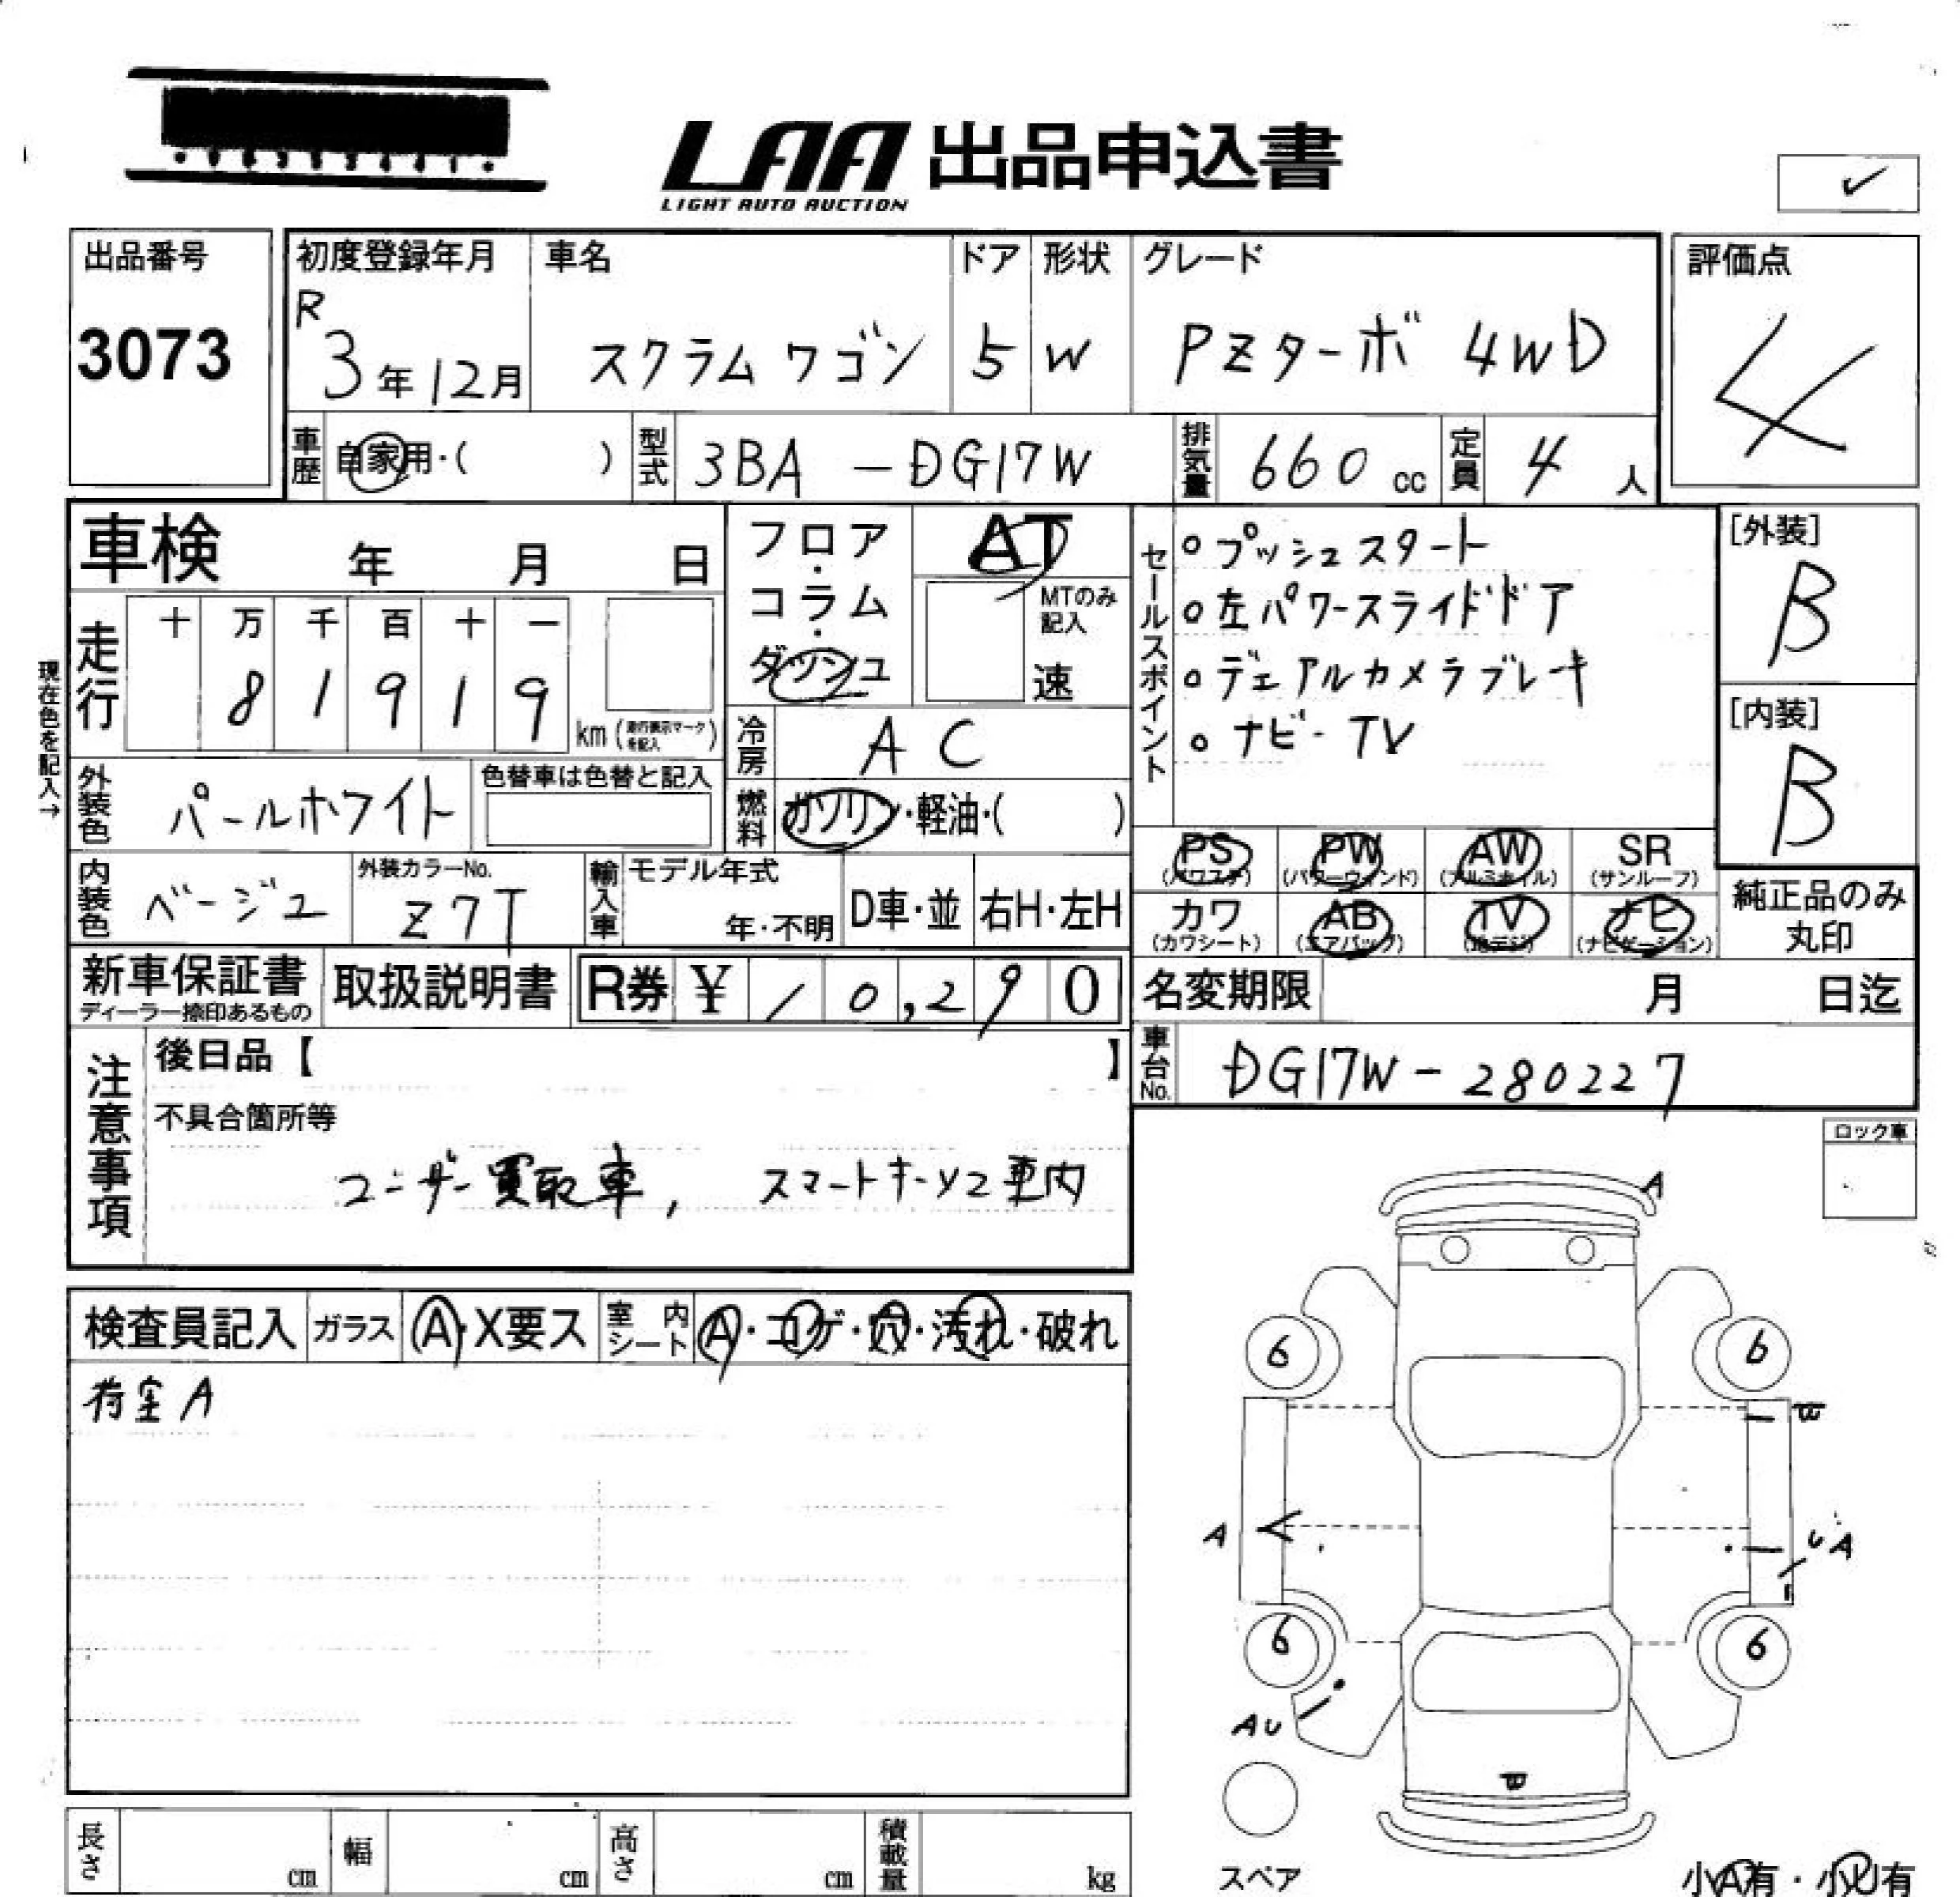 LAA 出品申込書
LIGHT AUTO AUCTION
出品番号
3073
初度登録年月
R
3年12月
車名
スクラムワゴン
ドア
5
形状
W
グレード
PZターボ 4WD
評価点
4
車歴
自家用・( )
型式
3BA-DG17W
排気量
660 cc
定員
4 人
車検 年 月 日
フロア・コラム・ダッシュ
AT
MTのみ記入
速
セールスポイント
○プッシュスタート
○左パワースライドドア
○デュアルカメラブレーキ
○ナビ・TV
[外装]
B
[内装]
B
現在色を記入→
走行
十 万 千 百 十 一
8 1 9 1 9
km(走行表示マークを記入)
冷房
AC
外装色
パールホワイト
色替車は色替と記入
燃料
ガソリン・軽油・( )
PS AW PW SR
(パワステ) (パワーウィンド) (アルミホイル) (サンルーフ)
カワ AB TV ナビ
(カワシート) (エアバック) (地デジ) (ナビゲーション)
純正品のみ
丸印
内装色
ベージュ
外装カラーNo.
Z7T
輸入車
モデル年式
年・不明
D車・並
右H・左H
新車保証書
ディーラー捺印あるもの
取扱説明書
R券 ¥ 10,290
名変期限 月 日迄
車台No.
DG17W-280227
注意事項
後日品【 】
不具合箇所等
ユーザー買取車, スマートキーY2車内
ロック車
A
検査員記入
ガラス
A・X要ス
室内シート
A・コゲ・穴・汚れ・破れ
荷室A
6 6
A
UA
6 6
AU
スペア
小A有・小U有
長さ cm
幅 cm
高さ cm
積載量 kg